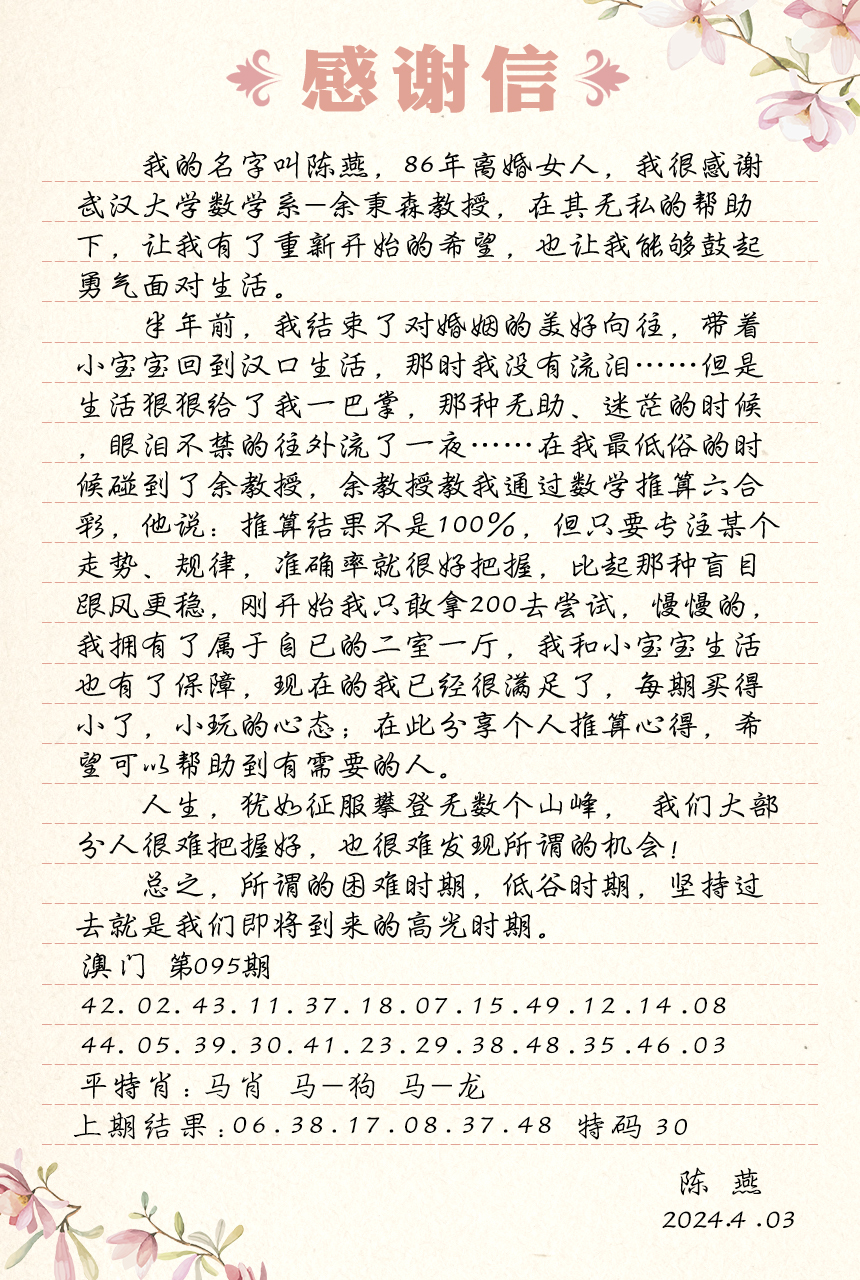 感谢信
我的名字叫陈燕，86年离婚女人，我很感谢
武汉大学数学系—余秉森教授，在其无私的帮助
下，让我有了重新开始的希望，也让我能够鼓起
勇气面对生活。
半年前，我结束了对婚姻的美好向往，带着
小宝宝回到汉口生活，那时我没有流泪……但是
生活狠狠给了我一巴掌，那种无助、迷茫的时候
，眼泪不禁的往外流了一夜……在我最低俗的时
候碰到了余教授，余教授教我通过数学推算六合
彩，他说：推算结果不是100%，但只要专注某个
走势、规律，准确率就很好把握，比起那种盲目
跟风更稳，刚开始我只敢拿200去尝试，慢慢的，
我拥有了属于自已的二室一厅，我和小宝宝生活
也有了保障，现在的我已经很满足了，每期买得
小了，小玩的心态；在此分享个人推算心得，希
望可以帮助到有需要的人。
人生，犹如征服攀登无数个山峰， 我们大部
分人很难把握好，也很难发现所谓的机会！
总之，所谓的困难时期，低谷时期，坚持过
去就是我们即将到来的高光时期。
澳门 第095期
42.02.43.11.37.18.07.15.49.12.14.08
44.05.39.30.41.23.29.38.48.35.46.03
平特肖：马肖 马—狗 马—龙
上期结果：06.38.17.08.37.48 特码 30
陈 燕
2024.4.03